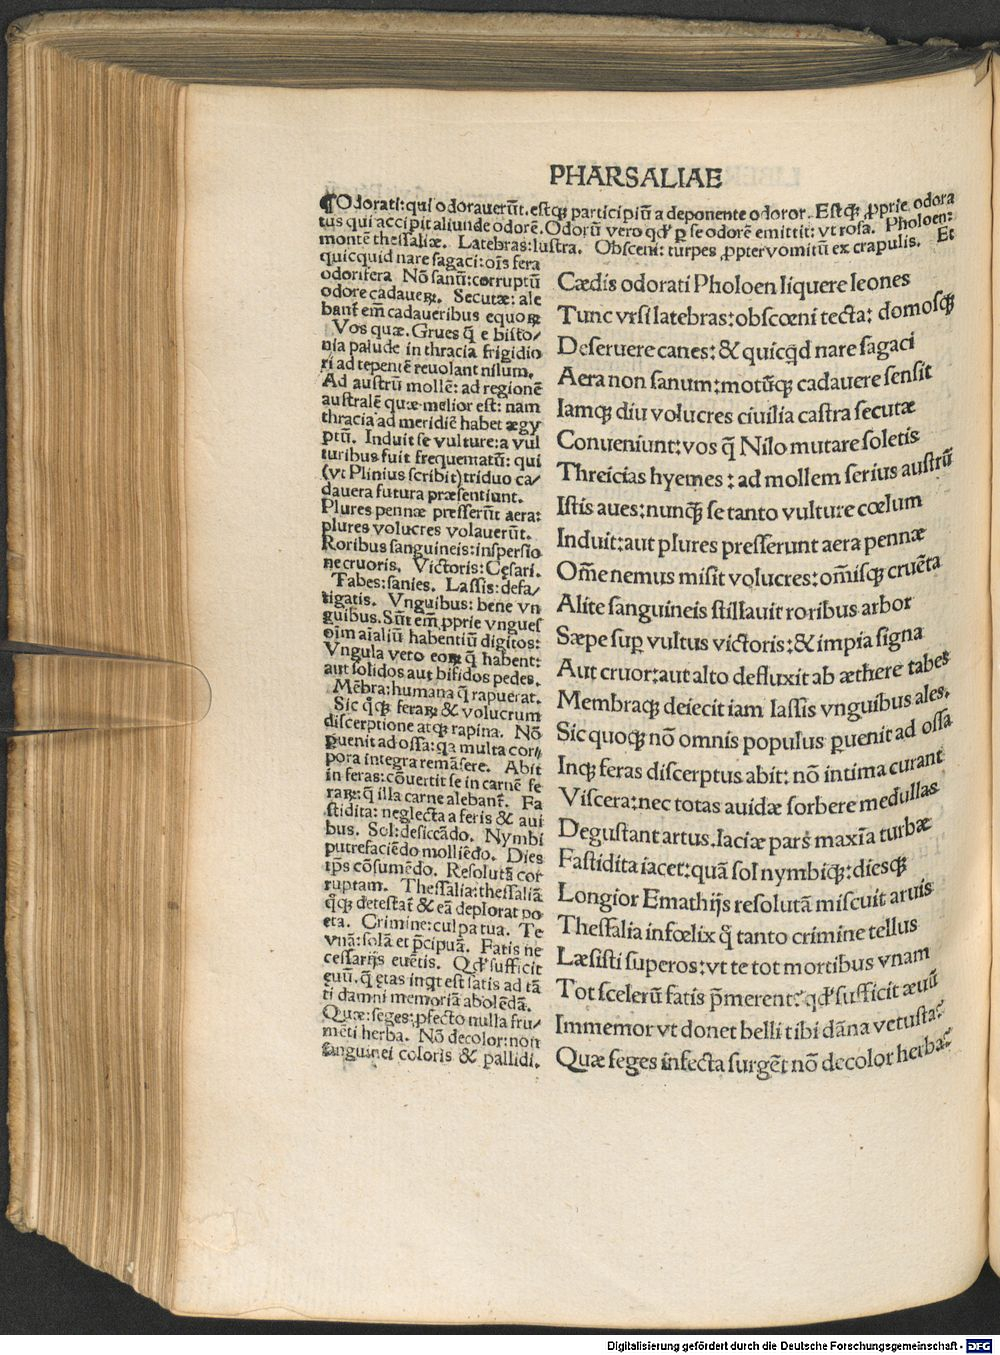 PHARSALIAE
¶Odorati:qui odorauerũt.estqꝫ participiũ a deponente odoror. Estqꝫ ꝓprie odora
tus qui accipit aliunde odorẽ. Odorũ vero qđ ꝑ se odorẽ emittit: vt rosa. Pholoen:
montẽ thessaliæ. Latebras:lustra. Obsceni: turpes ꝓpter vomitũ ex crapulis. Et
quicquid nare sagaci:oĩs fera
odorifera Nõ sanũ:corruptũ
odore cadaueꝝ. Secutæ: ale
bant̃ em̃ cadaueribus equoꝝ
Vos quæ. Grues q̃ e bisto/
nia palude in thracia frigidio
ri ad tepentẽ reuolant nilum.
Ad austrũ mollẽ: ad regionẽ
australẽ quæ melior est: nam
thracia ad meridiẽ habet ægy
ptũ. Induit se vulture:a vul
turibus fuit frequentatũ: qui
(vt Plinius scribit)triduo ca/
dauera futura præsentiunt.
Plures pennæ presserũt aera:
plures volucres volauerũt.
Roribus sanguineis:inspersio
ne cruoris. Victoris: Cęsari.
Tabes:sanies. Lassis:defa/
tigatis. Vnguibus: bene vn
guibus. Sũt em̃ ꝓprie vngues
oĩm aĩaliũ habentiũ digitos:
Vngula vero eoꝝ q̃ habent:
aut solidos aut bifidos pedes.
Mẽbra:humana q̃ rapuerat.
Sic q̊qꝫ feraꝝ & volucrum
discerptione atqꝫ rapina. Nõ
ꝑuenit ad ossa: qa multa cor/
pora integra remãsere. Abit
in feras:cõuertit se in carnẽ fe
raꝝ:q̃ illa carne alebant̃. Fa
stidita: neglecta a feris & aui
bus. Sol:desiccãdo. Nymbi
putrefaciẽdo molliẽdo. Dies
tp̃s cõsumẽdo. Resolutã cor
ruptam. Thessalia:thessaliã
q̊qꝫ detestat̃ & eã deplorat po
eta. Crimine:culpa tua. Te
vnã:solã et p̃cipuã. Fatis ne
cessarijs euẽtis. Qđ sufficit
euũ. q̃ ętas inqt est satis ad tã
ti damni memoriã abolẽdã.
Quæ:seges:ꝓfecto nulla fru/
mẽti herba. Nõ decolor:non
sanguinei coloris & pallidi.
Cædis odorati Pholoen liquere leones
Tunc vrsi latebras:obscœni tecta: domosqꝫ
Deseruere canes:& quicqd nare sagaci
Aera non sanum:motũqꝫ cadauere sensit
Iamqꝫ diu volucres ciuilia castra secutæ
Conueniunt:vos q̃ Nilo mutare soletis
Threicias hyemes : ad mollem serius austrũ
Istis aues:nunq̃ se tanto vulture cœlum
Induit:aut plures presserunt aera pennæ
Om̃e nemus misit volucres:om̃isqꝫ cruẽta
Alite sanguineis stillauit roribus arbor
Sæpe suꝑ vultus victoris:& impia signa
Aut cruor:aut alto defluxit ab æthere tabes
Membraqꝫ deiecit iam lassis vnguibus ales.
Sic quoqꝫ nõ omnis populus ꝑuenit ad ossa
Inqꝫ feras discerptus abit: nõ intima curant
Viscera:nec totas auidæ sorbere medullas
Degustant artus.laciæ pars maxĩa turbæ
Fastidita iacet:quã sol nymbiqꝫ:diesqꝫ
Longior Emathijs resolutã miscuit aruis
Thessalia infœlix q̊ tanto crimine tellus
Læsisti superos:vt te tot mortibus vnam
Tot scelerũ fatis p̃merent?qđ sufficit æuũ
Immemor vt donet belli tibi dãna vetustas?
Quæ seges infecta surgẽt nõ decolor herba?
Digitalisierung gefördert durch die Deutsche Forschungsgemeinschaft - DFG